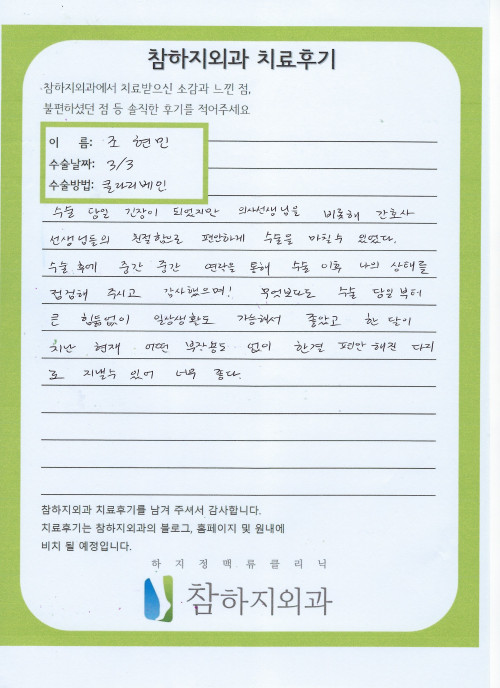 참하지외과 치료후기
참하지외과에서 치료받으신 소감과 느낀 점,
불편하셨던 점 등 솔직한 후기를 적어주세요
이 름: 조 현민
수술날짜: 3/3
수술방법: 클라리베인
수술 당일 긴장이 되었지만 의사선생님을 비롯해 간호사
선생님들의 친절함으로 편안하게 수술을 마칠수 있었다.
수술 후에 중간 중간 연락을 통해 수술 이후 나의 상태를
점검해 주시고 감사했으며! 무엇보다도 수술 당일부터
큰 힘듦없이 일상생활도 가능해서 좋았고 한 달이
지난 현재 어떤 부작용도 없이 한결 편안해진 다리
로 지낼수 있어 너무 좋다.
참하지외과 치료후기를 남겨 주셔서 감사합니다.
치료후기는 참하지외과의 블로그, 홈페이지 및 원내에
비치 될 예정입니다.
하지정맥류클리닉
참하지외과